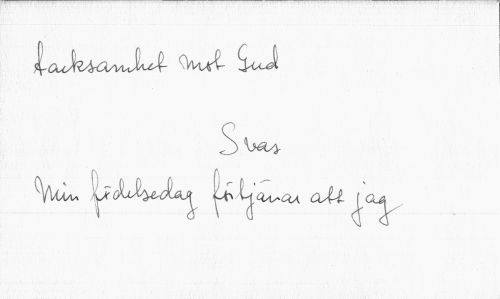 tacksamhet mot Gud
Svas
Min födelsedag förtjänar att jag